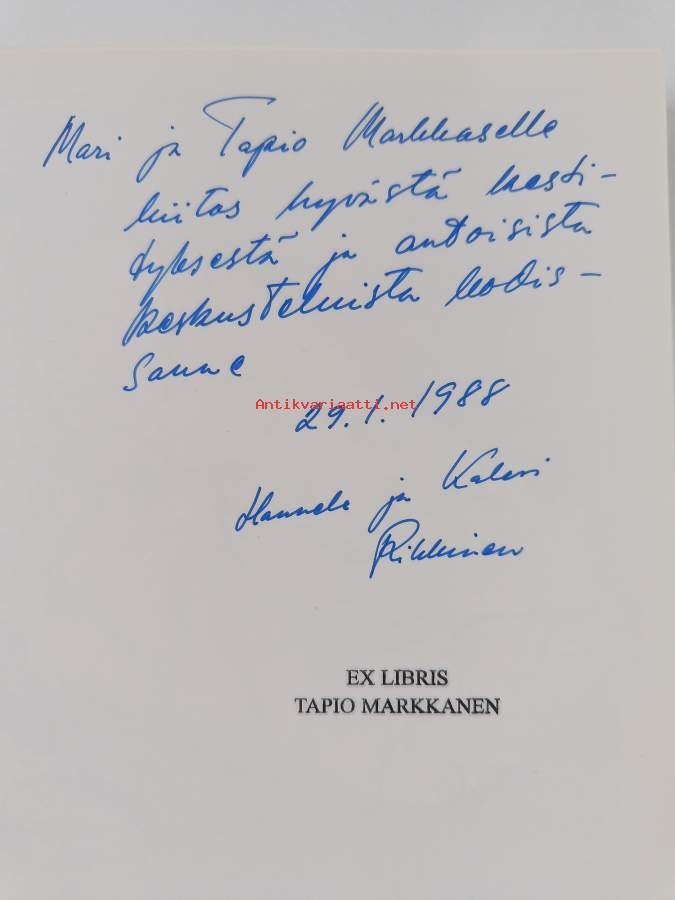 Mari ja Tapio Markkaselle
kiitos hyvästä kesti-
tyksestä ja antoisista
keskusteluista kodis-
sanne
Antikvariaatti.net
29.1.1988
Hannele ja Kalevi
Rikkinen
EX LIBRIS
TAPIO MARKKANEN